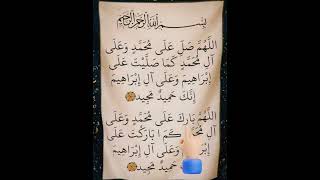 بِسْمِ اللهِ الرَّحْمٰنِ الرَّحِيْمِ
اَللّٰهُمَّ صَلِّ عَلَى مُحَمَّدٍ وَعَلَى
آلِ مُحَمَّدٍ كَمَا صَلَّيْتَ عَلَى
إِبْرَاهِيمَ وَعَلَى آلِ إِبْرَاهِيمَ
إِنَّكَ حَمِيدٌ مَجِيدٌ
اَللّٰهُمَّ بَارِكْ عَلَى مُحَمَّدٍ وَعَلَى
آلِ كَمَا بَارَكْتَ عَلَى
وَعَلَى آلِ إِبْرَاهِيمَ
حَمِيدٌ مَجِيدٌ